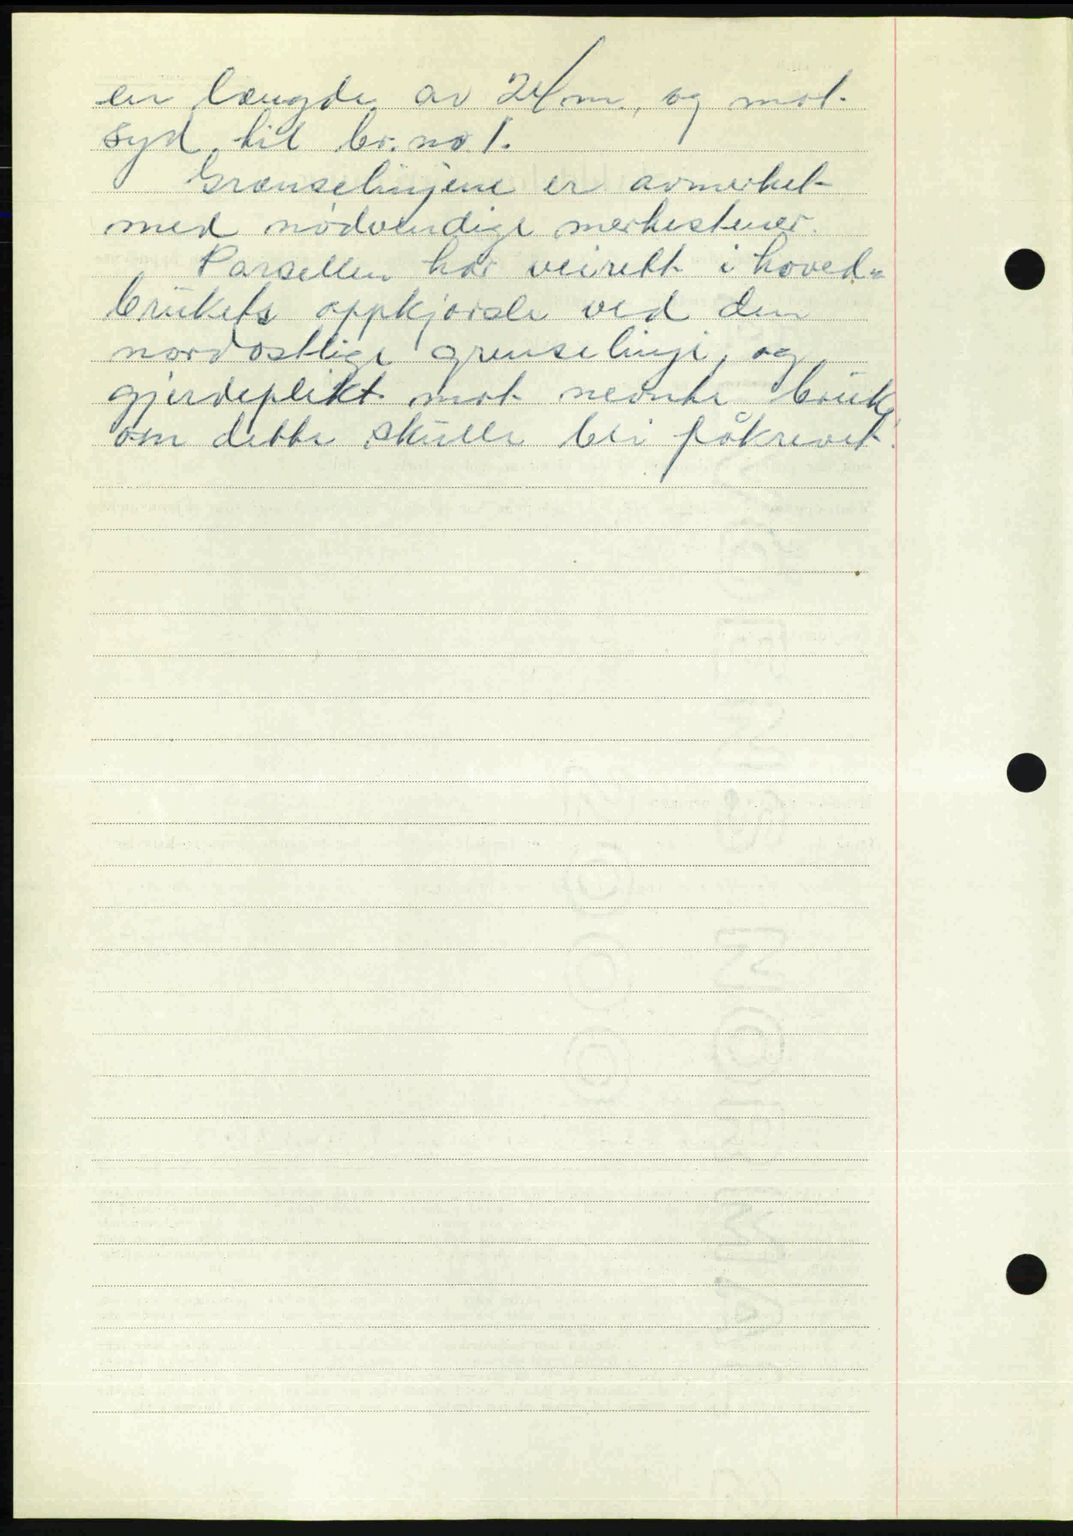 en længde av 24 m., og mot
syd til br. no. 1.
Grænselinjene er avmerket
med nødvendige merkestener.
Parsellen har veirett i hoved-
brukets oppkjørsle ved den
nordøstlige grenselinje, og
gjerdeplikt mot nevnte bruk,
om dette skulle bli påkrevet.